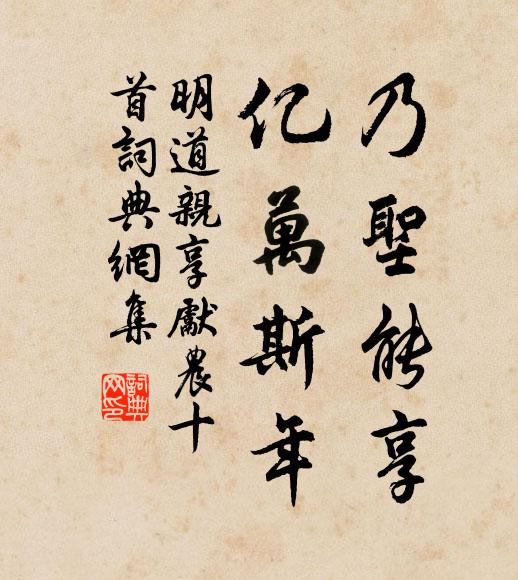 乃聖能享
亿萬斯年
明道親享獻農十
首詞典網集
詞典
网印